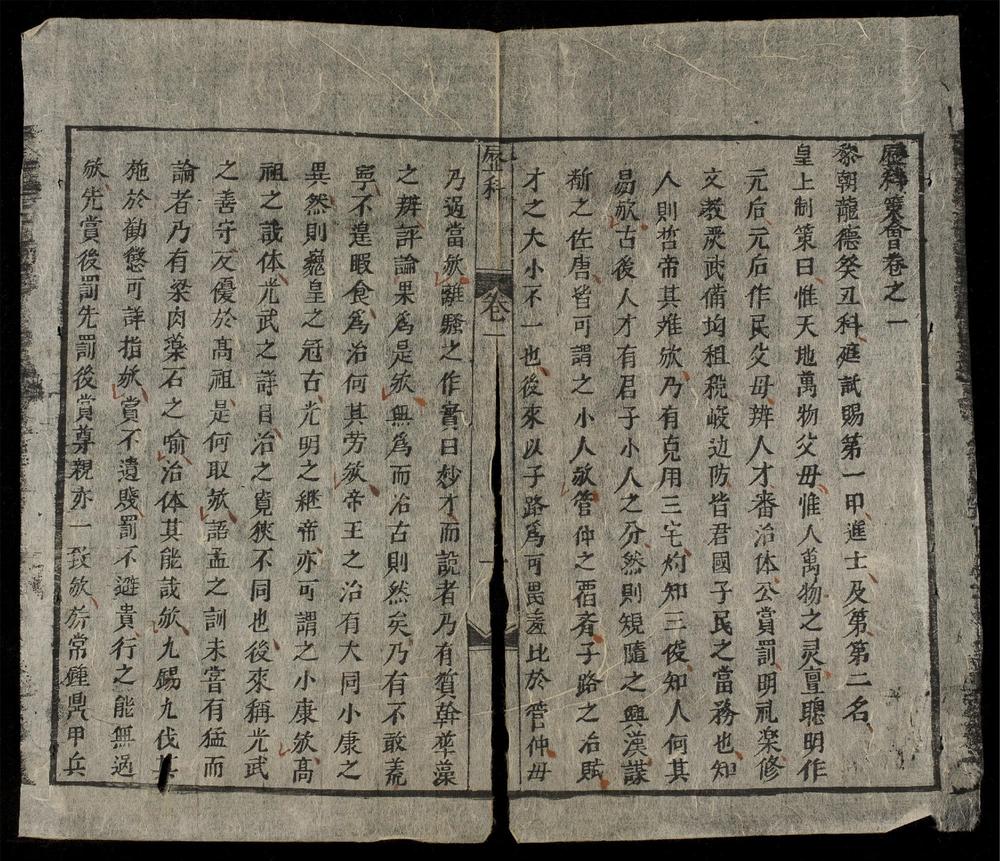 歷科策會卷之一
黎朝龍德癸丑科庭試賜第一甲進士及第第二名
皇上制策曰惟天地萬物父母惟人萬物之灵亶聰明作
元后元后作民父母辨人才審治体公賞罰明礼楽修
文教洪武備均租税峻边防皆君國子民之當務也知
人則哲帝其难欤乃有克用三宅灼知三俊知人何其
易欤古後人才有君子小人之分然則規隨之興漢謀
斷之佐唐皆可謂之小人欤管仲之覇齊子路之治賦
才之大小不一也後來以子路為可畏羞比於管仲毋
歷科
卷一
一
乃過當欤離騷之作實曰妙才而說者乃有質幹華藻
之辨評論果為是欤無為而治古則然矣乃有不敢荒
寧不遑暇食為治何其劳欤帝王之治有大同小康之
異然則巍皇之冠古光明之継帝亦可謂之小康欤高
祖之哉体光武之詳目治之寬狹不同也後來稱光武
之善守反優於高祖是何取欤語孟之訓未嘗有猛而
論者乃有梁肉藥石之喻治体其能哉欤九錫九伐其
施於勧懲可詳指欤賞不遺賤罰不避貴行之能無過
欤先賞後罰先罰後賞尊親亦一致欤旂常鍾鼎甲兵